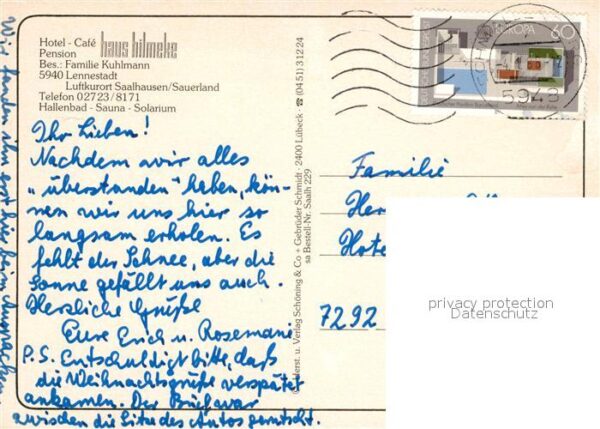 Hotel - Café haus hilmeke
Pension
Bes.: Familie Kuhlmann
5940 Lennestadt
Luftkurort Saalhausen/Sauerland
Telefon 02723/8171
Hallenbad - Sauna - Solarium
Ihr Lieben!
Nachdem wir alles
„überstanden" haben, kön-
nen wir uns hier so
langsam erholen. Es
fehlt der Schnee, aber die
Sonne gefällt uns auch.
Herzliche Grüße
Eure Erich u. Rosemarie
P.S. Entschuldigt bitte, daß
die Weihnachtsgrüße verspätet
ankamen. Der Brief war
zwischen die Sitze des Autos gerutscht.
Wir fanden ihn erst hier beim Auspacken.
Schöning & Co + Gebrüder Schmidt · 2400 Lübeck · ☎ (04 51) 3 12 24
Bestell-Nr. Saalh 229
EUROPA 60
Familie
Hote
7292
privacy protection
Datenschutz